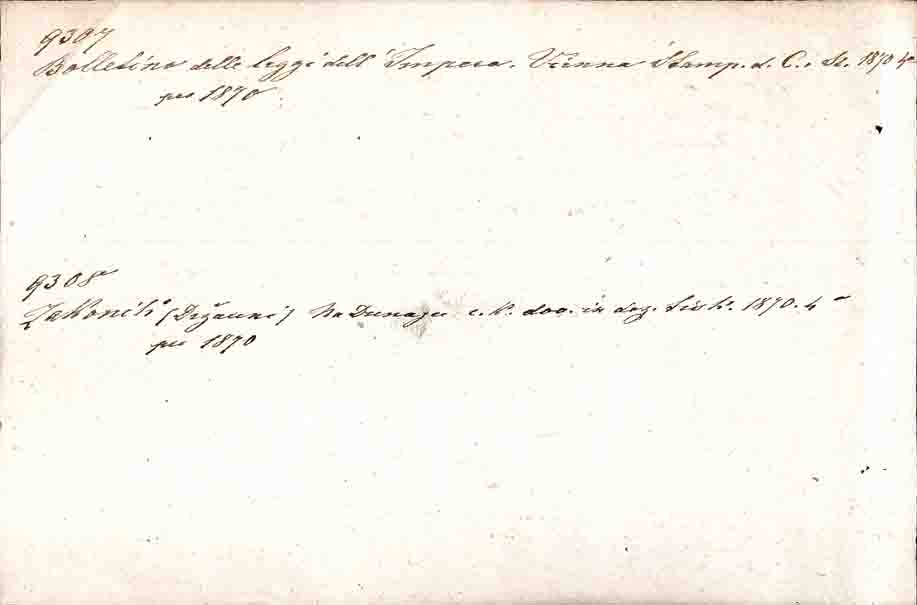 9307
Bolletino delle leggi dell' Impero. Vienna Stamp. d. C. e St. 1870 4°
per 1870
9308
Zakonik (Državni) Na Dunaju c. k. dvo. in drž. tisk. 1870. 4°
per 1870